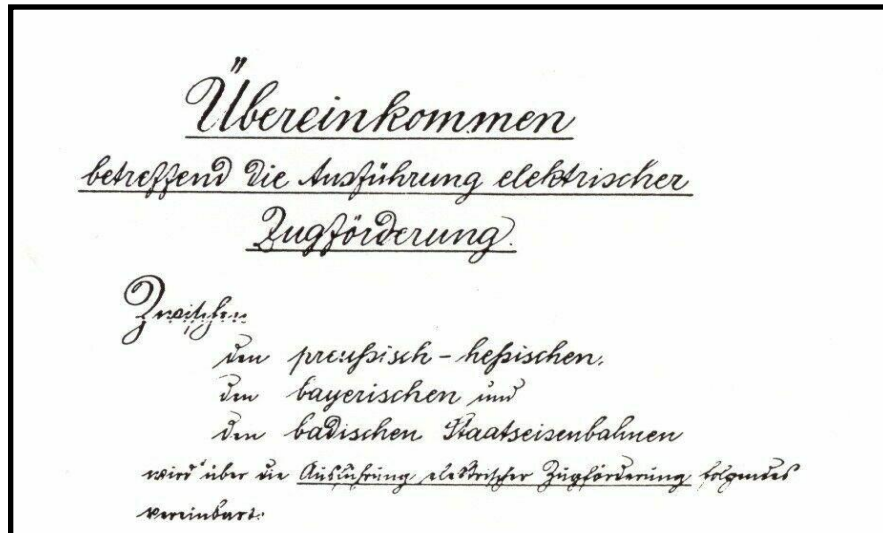 Übereinkommen
betreffend die Ausführung elektrischer
Zugförderung.
Zwischen
den preußisch-heßischen,
den bayerischen und
den badischen Staatseisenbahnen
wird über die Ausführung elektrischer Zugförderung folgendes
vereinbart: